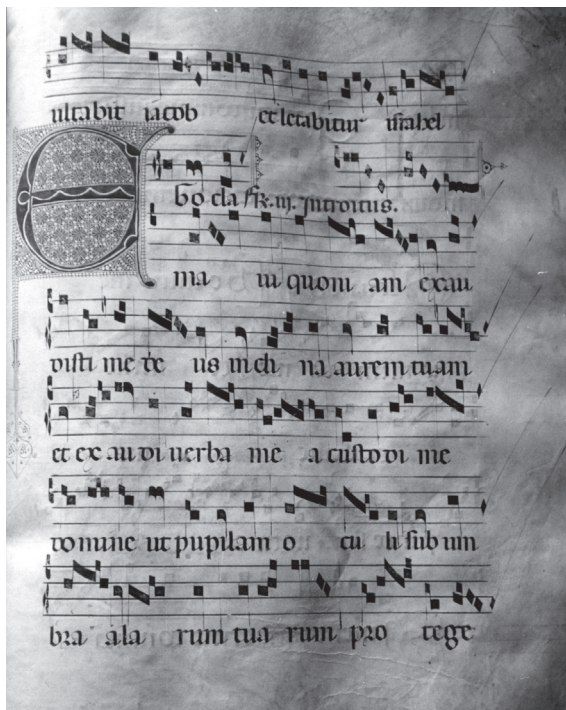 ultabit iacob et letabitur israhel
E Go cla fr. iij. Introitus.
ma ui quoni am exau
disti me de us in cli na aurem tuam
et ex au di uerba me a custo di me
domine ut pupilam o cu li sub um
bra ala rum tua rum pro tege